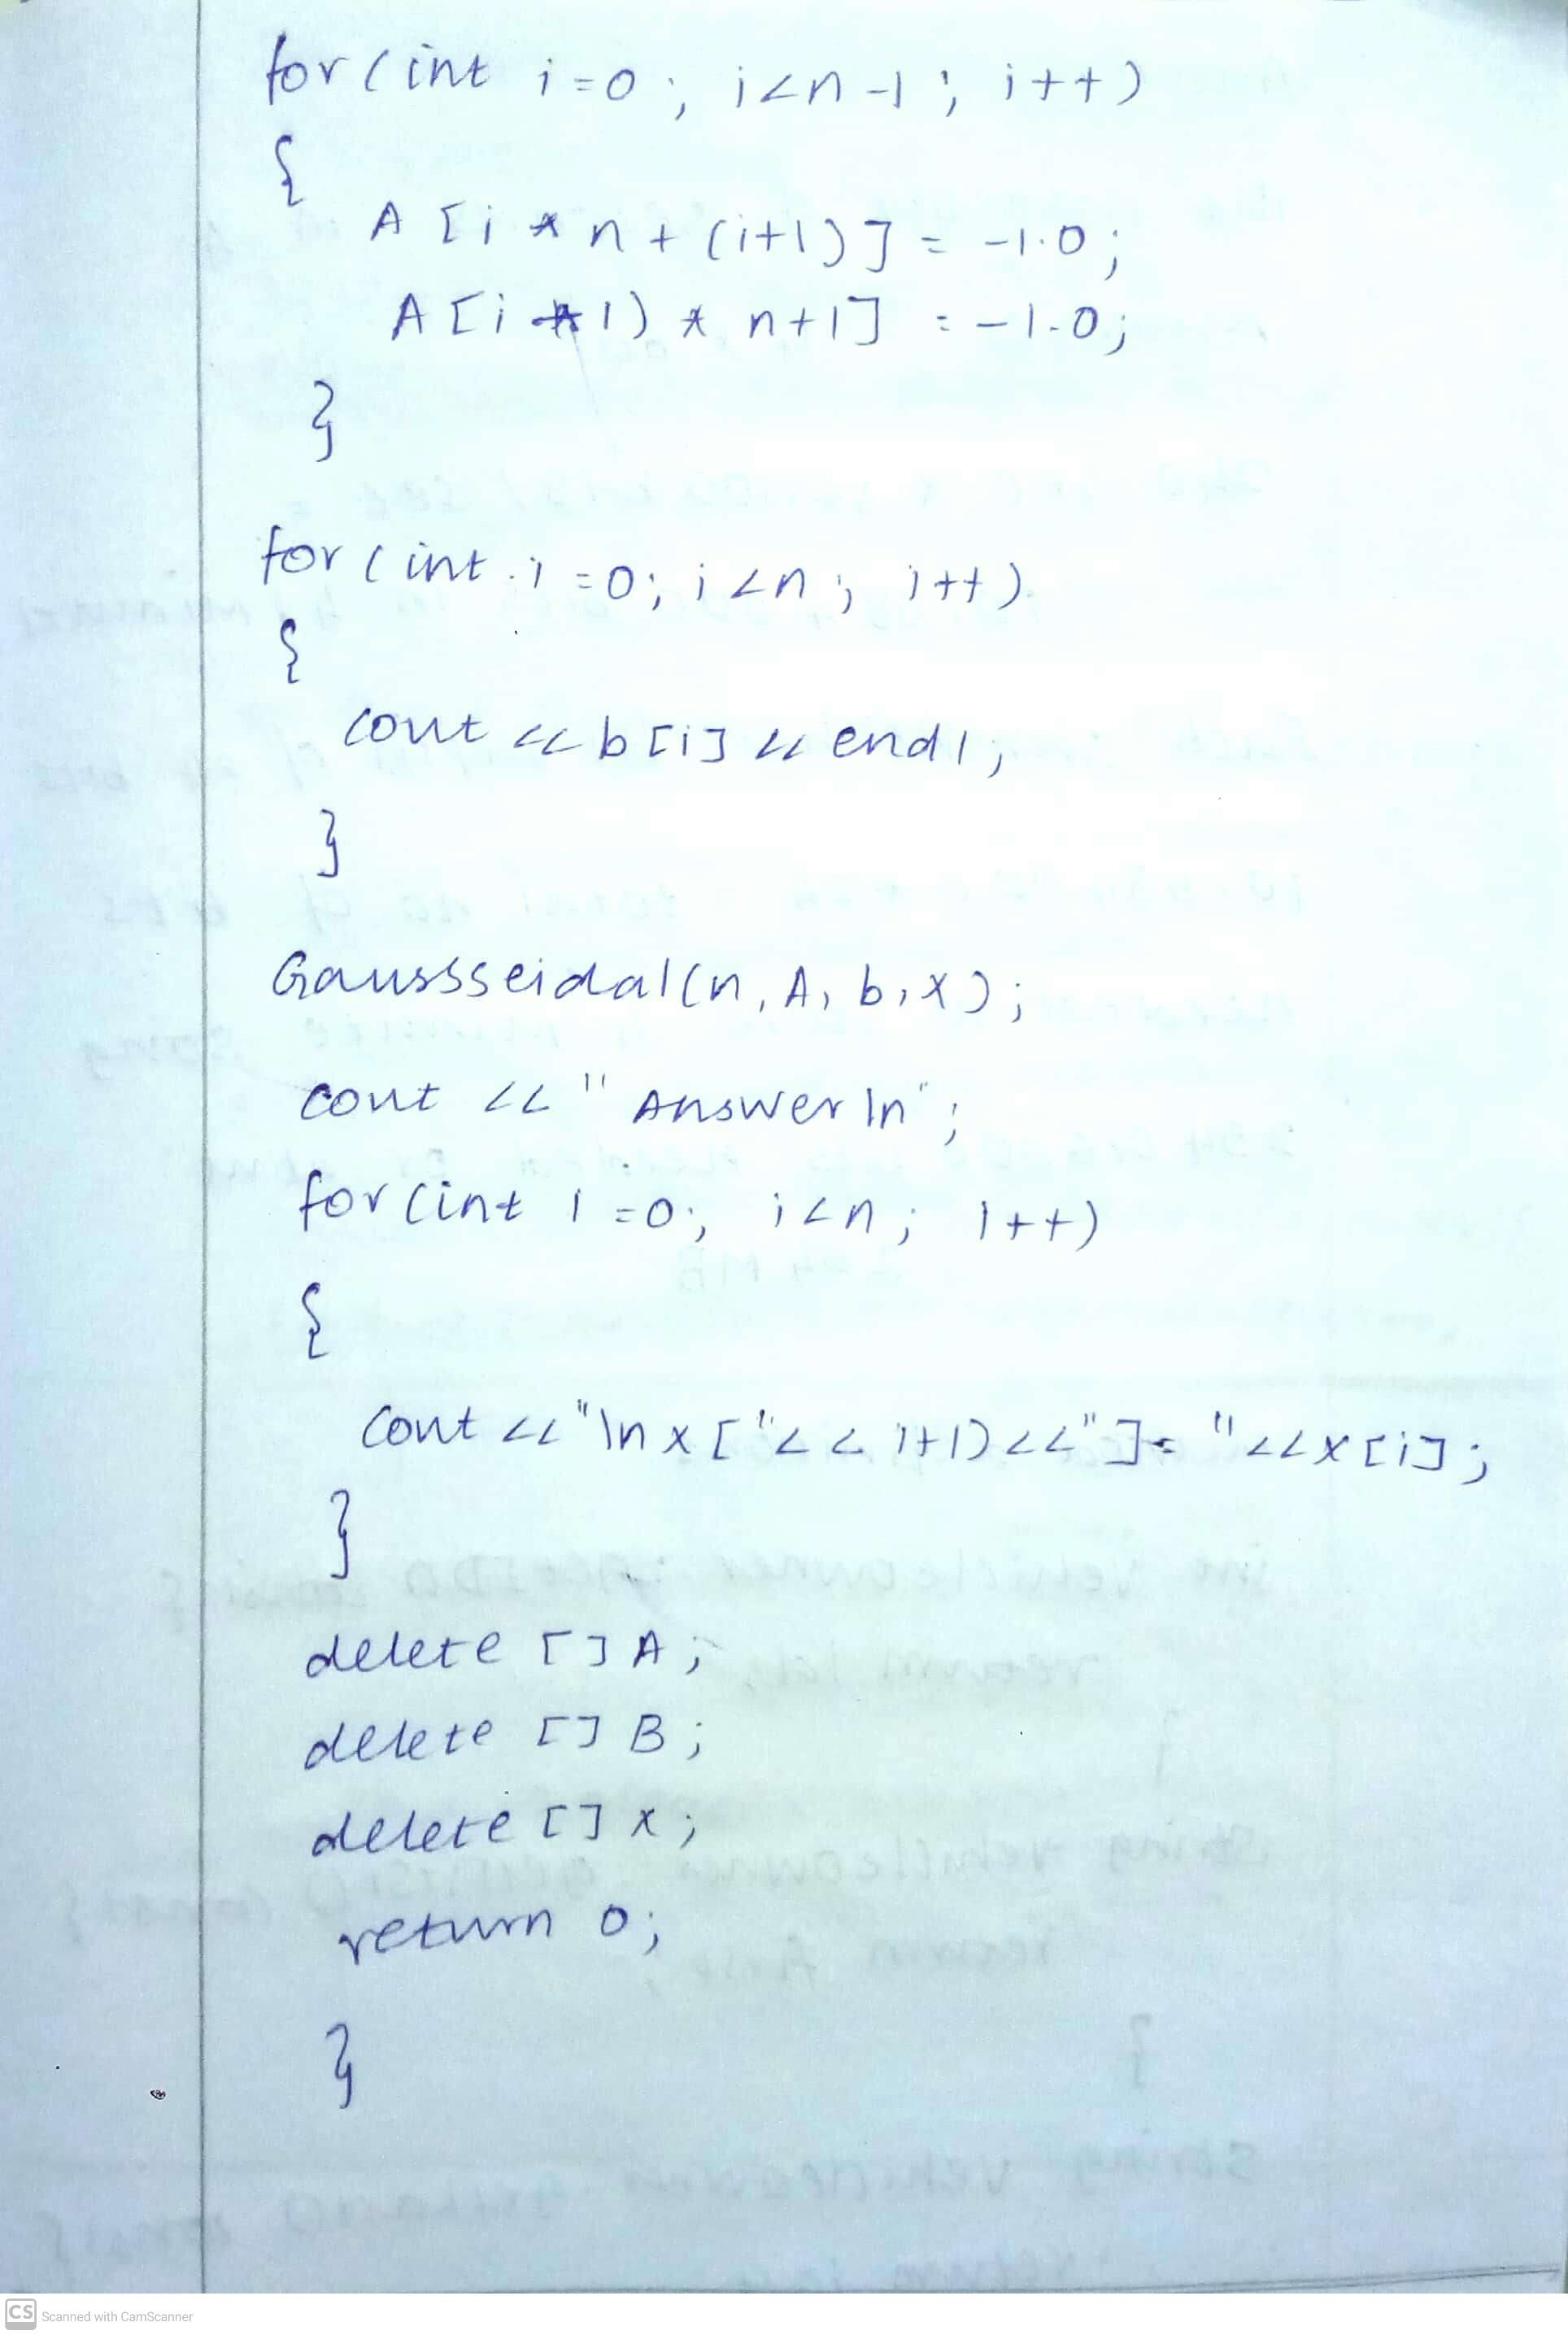 for (int i=0; i<n-1; i++)
{
A [i * n + (i+1)] = -1.0;
A [i *1) * n+1] = -1.0;
}
for (int i =0; i <n; i++)
{
cout << b[i] << endl;
}
Gaussseidal(n, A, b, x);
cout << "Answer\n";
for (int i =0; i<n; i++)
{
cout <<"\nx["<< i+1)<<"]= "<<x[i];
}
delete []A;
delete [] B;
delete [] x;
return 0;
}
CS Scanned with CamScanner